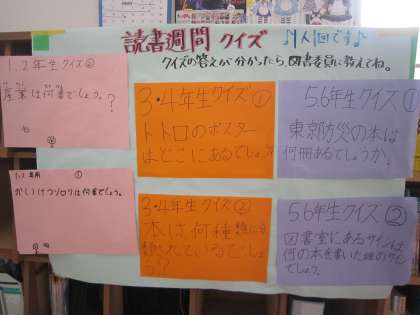 読書週間 クイズ ♪1人1回です♪
クイズの答えが分かったら、図書委員に教えてね。
1.2年生クイズ②
産業は何番でしょう。?
1.2年用 ①
かいけつゾロリは何番でしょう。
3・4年生クイズ①
トトロのポスター
はどこにあるでしょうか
3・4年生クイズ②
本は何種類に分
れているでしょ
う?
5.6年生クイズ①
東京防災の本は
何冊あるでしょうか。
5.6年生クイズ②
図書室にあるサインは
何の本を書いた
サイン
でしょう。